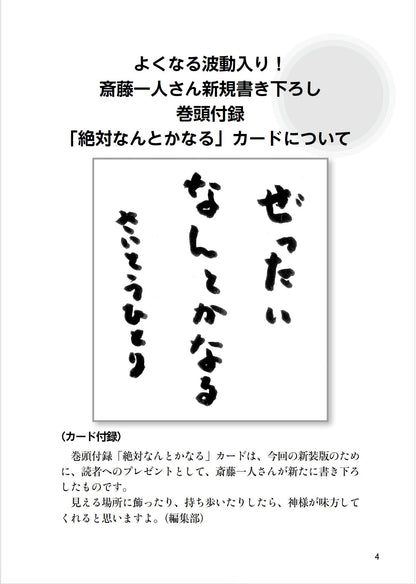 よくなる波動入り！
斎藤一人さん新規書き下ろし
巻頭付録
「絶対なんとかなる」カードについて
ぜったい
なんとかなる
さいとうひとり
（カード付録）
巻頭付録「絶対なんとかなる」カードは、今回の新装版のため
に、読者へのプレゼントとして、斎藤一人さんが新たに書き下ろ
したものです。
見える場所に飾ったり、持ち歩いたりしたら、神様が味方して
くれると思いますよ。（編集部）
4